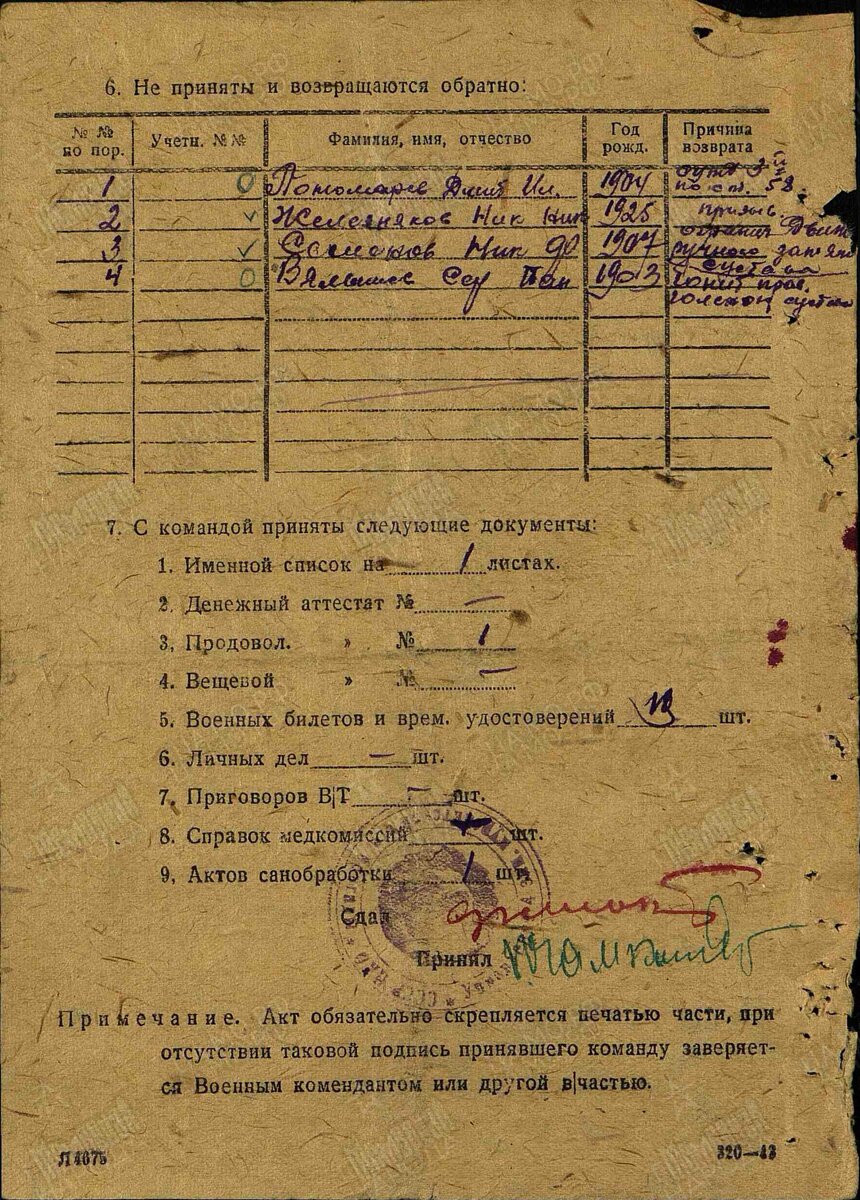 6. Не приняты и возвращаются обратно:
№ № по пор. Учетн. № № Фамилия, имя, отчество Год рожд. Причина возврата
1 Пономарев Дмит Ил. 1904 по ст. 58
2 Железняков Ник Ник 1925
3 Ник Ф 1907
4 Сер Пан 1903
сустава
сустава
7. С командой приняты следующие документы:
1. Именной список на 1 листах.
2. Денежный аттестат № —
3, Продовол. » № 1
4. Вещевой » № —
5. Военных билетов и врем. удостоверений шт.
6. Личных дел — шт.
7. Приговоров В|Т — шт.
8. Справок медкомиссий шт.
9, Актов санобработки 1 шт.
Сдал
Принял
Примечание. Акт обязательно скрепляется печатью части, при
отсутствии таковой подпись принявшего команду заверяет-
ся Военным комендантом или другой в|частью.
Л4675 320—43